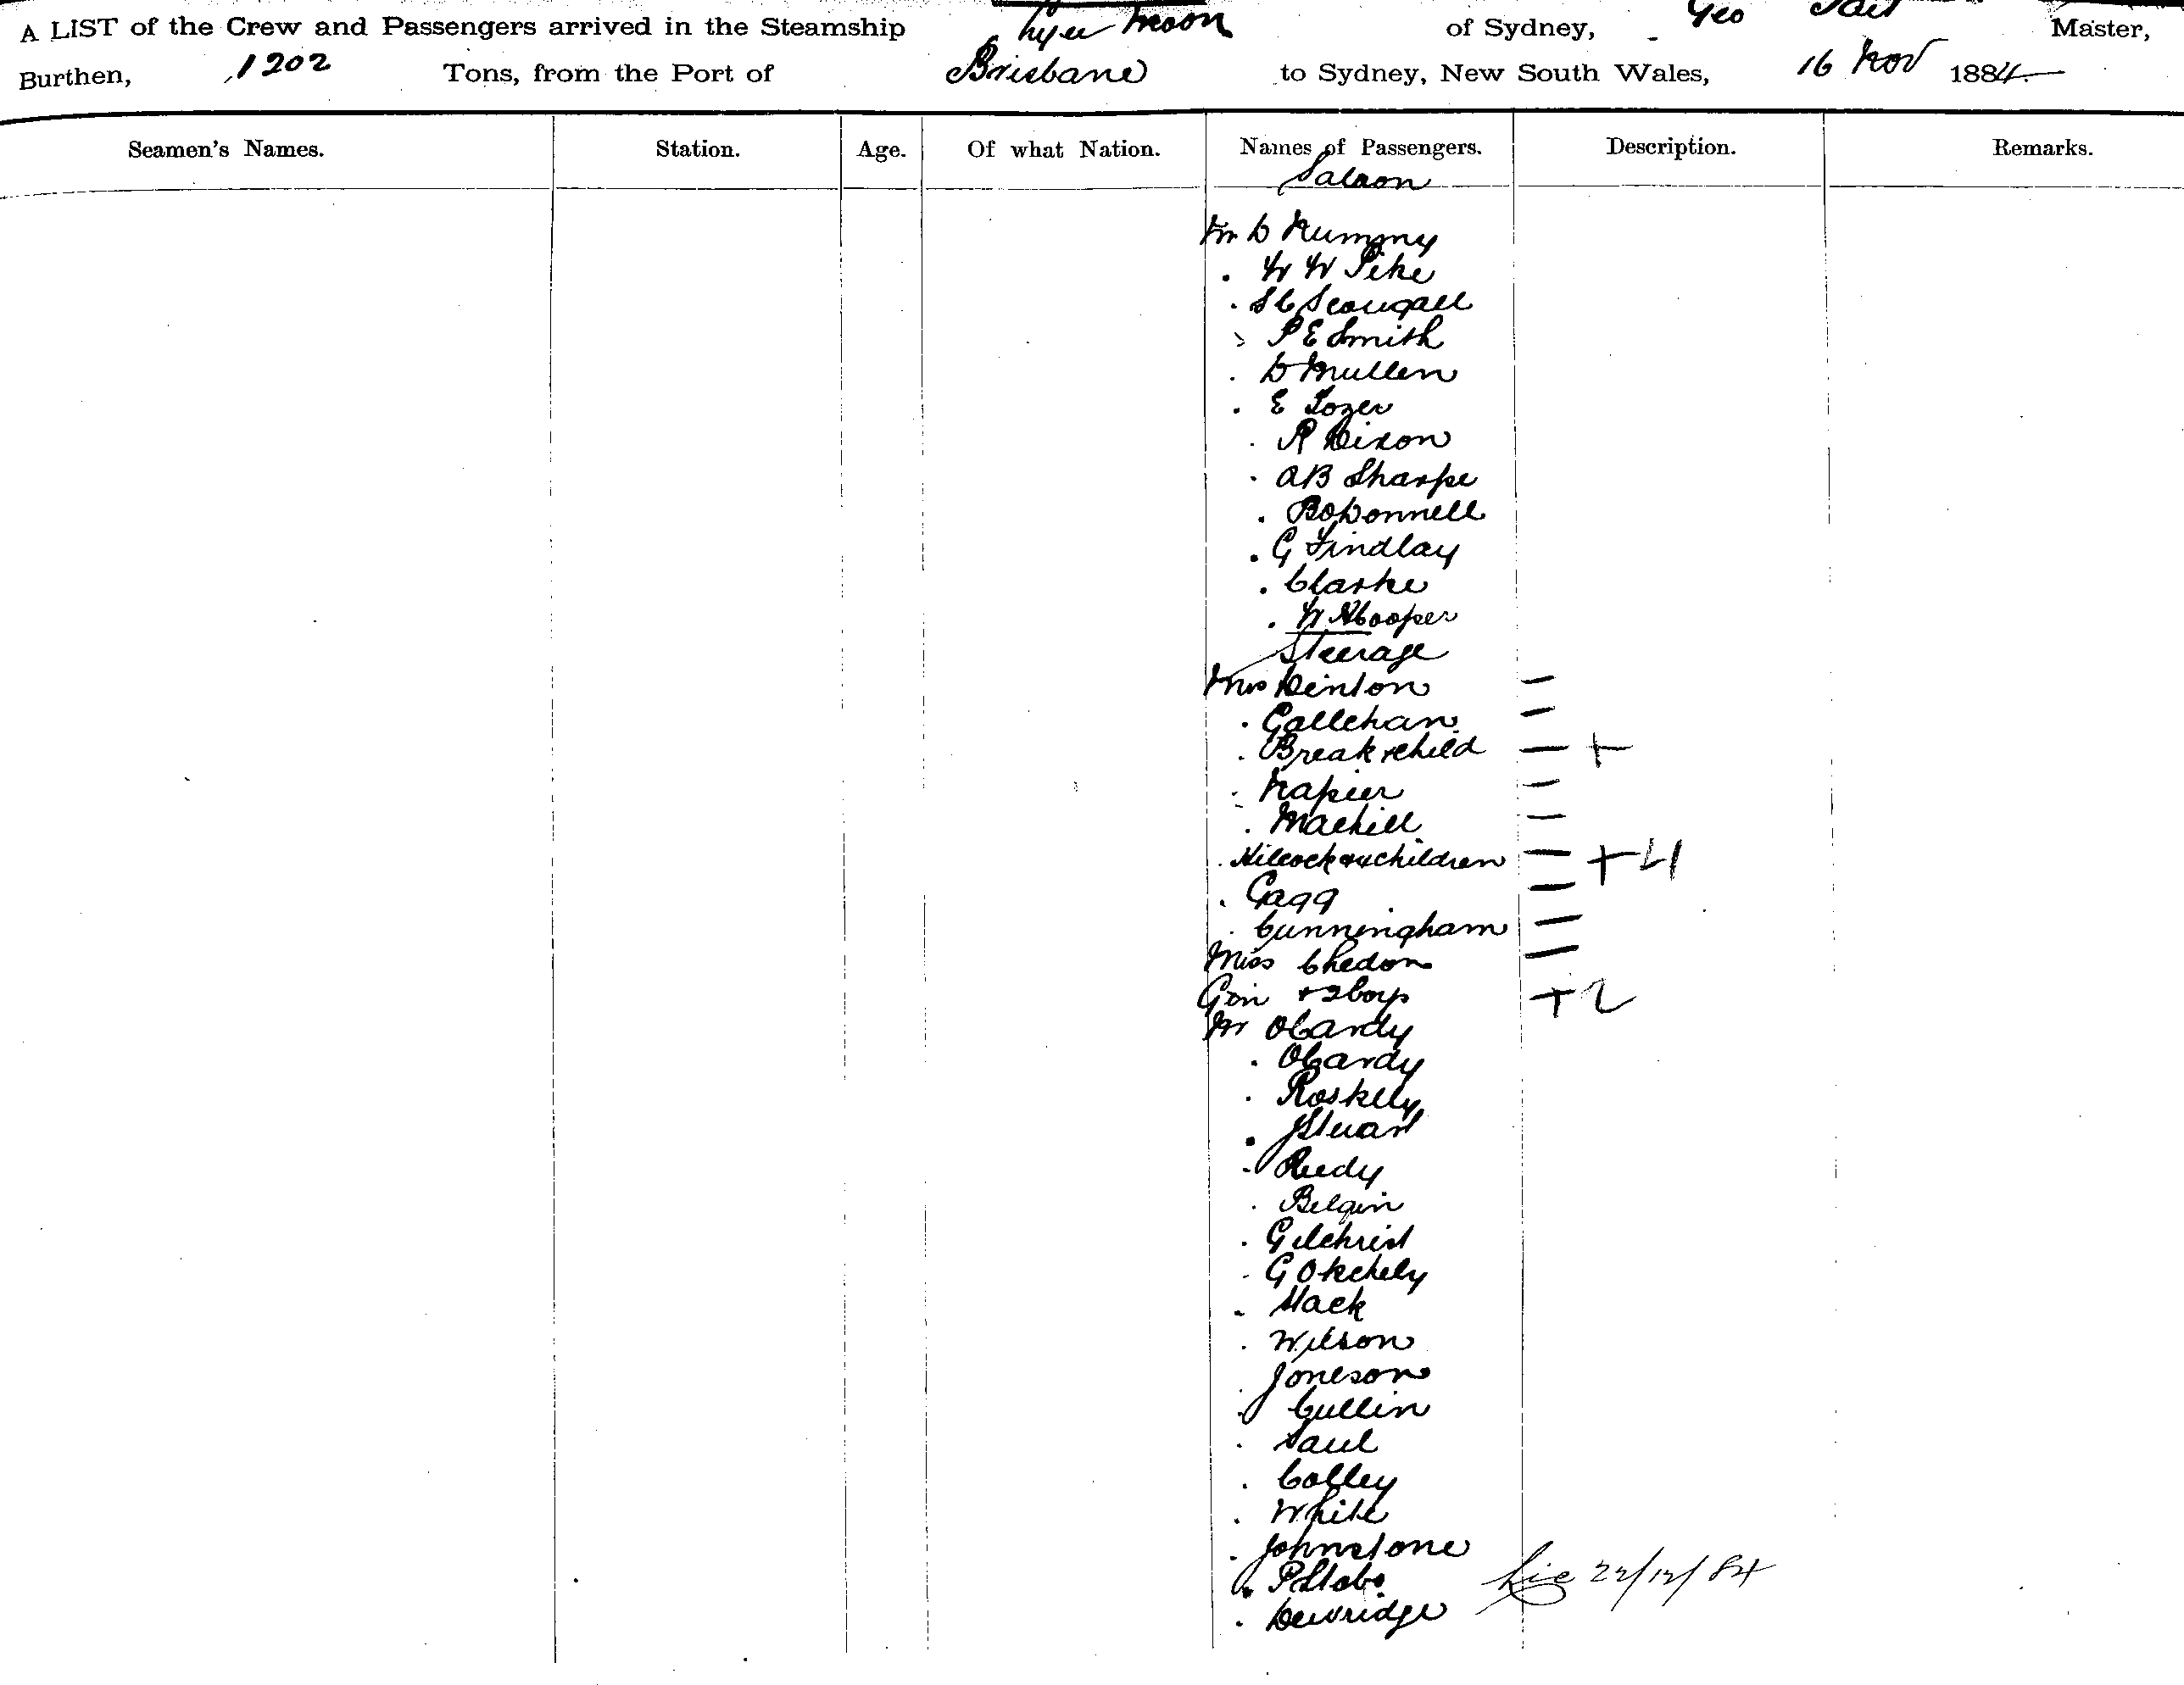 A LIST of the Crew and Passengers arrived in the Steamship Lyee Moon of Sydney, Geo Tait Master,
Burthen, 1202 Tons, from the Port of Brisbane to Sydney, New South Wales, 16 Nov 1884
Seamen's Names. Station. Age. Of what Nation. Names of Passengers. Description. Remarks.
Saloon
Mr D Nummy
. W W Pike
. S C Scougall
. P E Smith
. D Mullen
. E Tozer
. R Dixon
. A B Sharpe
. B O'Donnell
. G Findlay
. Clarke
. W H Cooper
Steerage
Mrs Denton —
. Gallehan —
. Break + child — +
. Napier —
. Machill —
. Hilcock & 4 children — + 4
. Gagg —
. Cunningham —
Miss Chedon —
Gin + 2 boys + 2
Mr O Cardy
. O Cardy
. Roskelly
. J Stuart
. Reedy
. Belgin
. Gilchrist
. G
. Mack
. Wilson
. Joneson
. Cullin
. Saul
. Colley
. White
. Johnstone
. P Stabo
. Dewridge